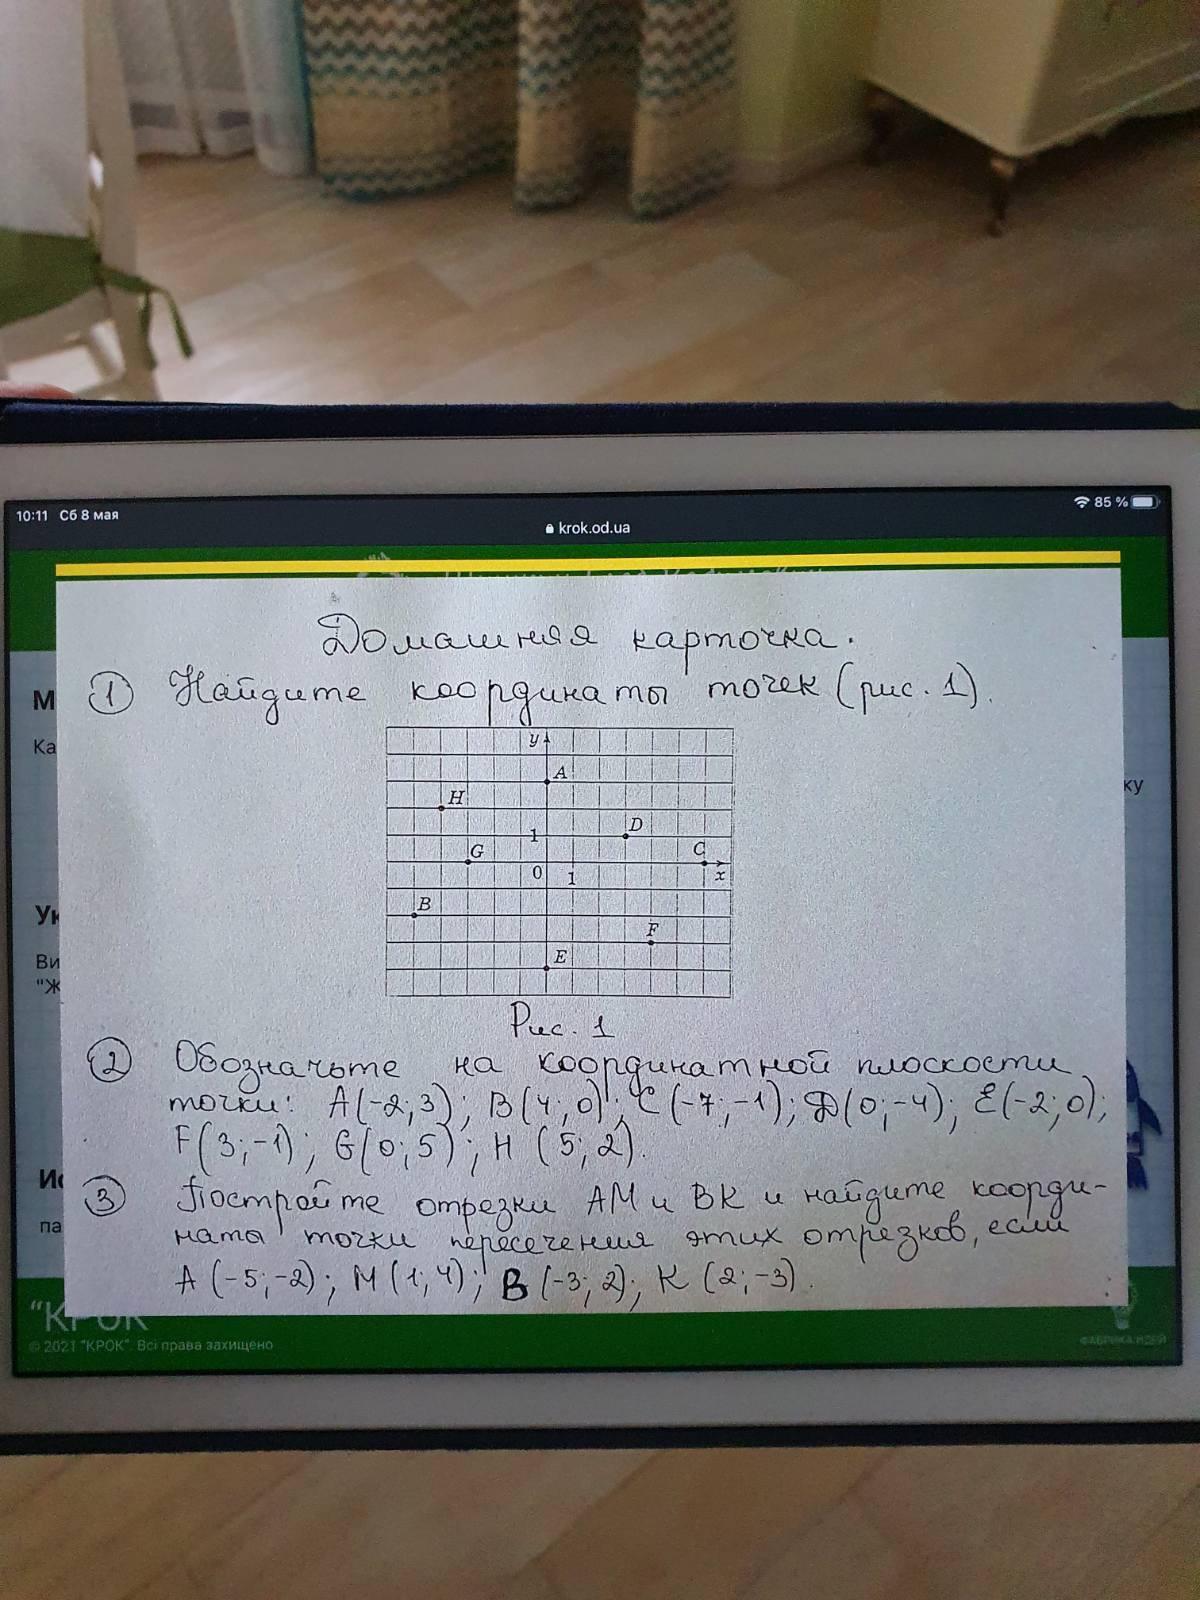 10:11 Сб 8 мая
85 %
krok.od.ua
Домашняя карточка.
① Найдите координаты точек (рис. 1).
y
A
H
1
D
G
C
0
1
x
B
F
E
Рис. 1
② Обозначьте на координатной плоскости
точки: A(-2; 3); B(4; 0); C(-7; -1); D(0; -4); E(-2; 0);
F(3; -1); G(0; 5); H (5; 2).
③ Постройте отрезки AM и BK и найдите коорди-
ната точки пересечения этих отрезков, если
A (-5; -2); M(1; 4); B (-3; 2); K (2; -3).
М
Ка
ку
Ук
Ви
"Ж
Ис
па
"КРОК"
© 2021 "КРОК". Всі права захищено
ФАБРИКА ИДЕЙ